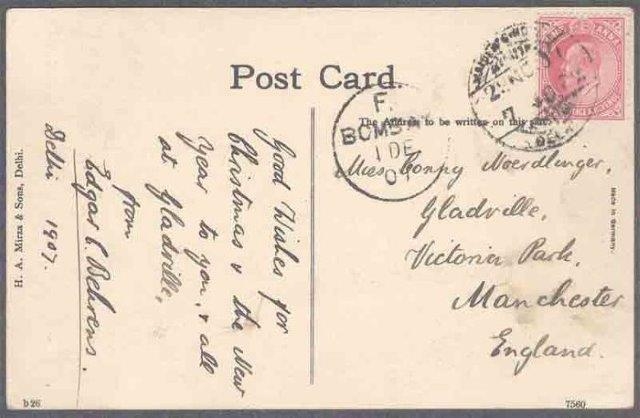 Post Card.
The Address to be written on this side.
F.
BOMBAY
1 DE
07
Good Wishes for
Christmas & the New
Year to you, & all
at Gladville,
from
Edgar C. Behrens.
Delhi 1907.
H. A. Mirza & Sons, Delhi.
Miss Conny Noerdlinger,
Gladville,
Victoria Park,
Manchester
England.
Made in Germany.
b 26
7560